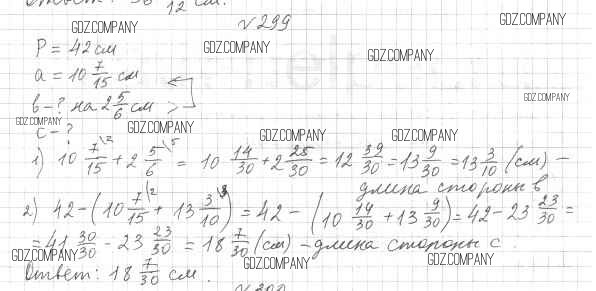 12 см.
№ 299
GDZ.COMPANY
GDZ.COMPANY
GDZ.COMPANY
GDZ.COMPANY
P = 42 см
a = 10 7/15 см
в - ? на 2 5/6 см >
GDZ.COMPANY
GDZ.COMPANY
с - ?
GDZ.COMPANY
GDZ.COMPANY
GDZ.COMPANY
1) 10 7/15 \2 + 2 5/6 \5 = 10 14/30 + 2 25/30 = 12 39/30 = 13 9/30 = 13 3/10 (см) –
длина стороны в
2) 42 – (10 7/15 \2 + 13 3/10 \3) = 42 – (10 14/30 + 13 9/30) = 42 – 23 23/30 =
= 41 30/30 – 23 23/30 = 18 7/30 (см) – длина стороны с.
GDZ.COMPANY
GDZ.COMPANY
GDZ.COMPANY
Ответ: 18 7/30 см.